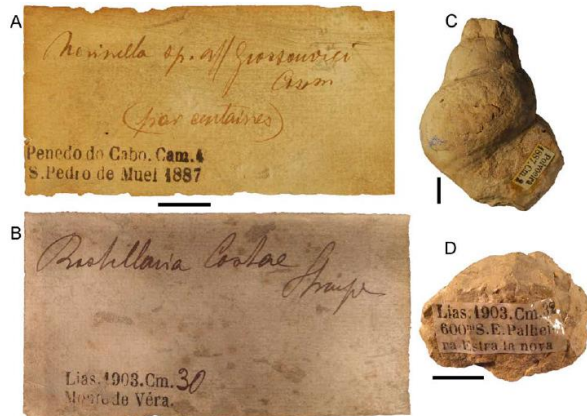 A
Nerinella sp. aff Grossouvrei
Cossm
(par centaines)
Penedo do Cabo. Cam. 4
S. Pedro de Muel 1887
B
Rostellaria Costae
Sharpe
Lias. 1903. Cm. 30
Monte de Véra.
C
Pedroneira
1887. Cam.
D
Lias. 1903. Cm.
600m S. E. Palhei
ra Estra la nova